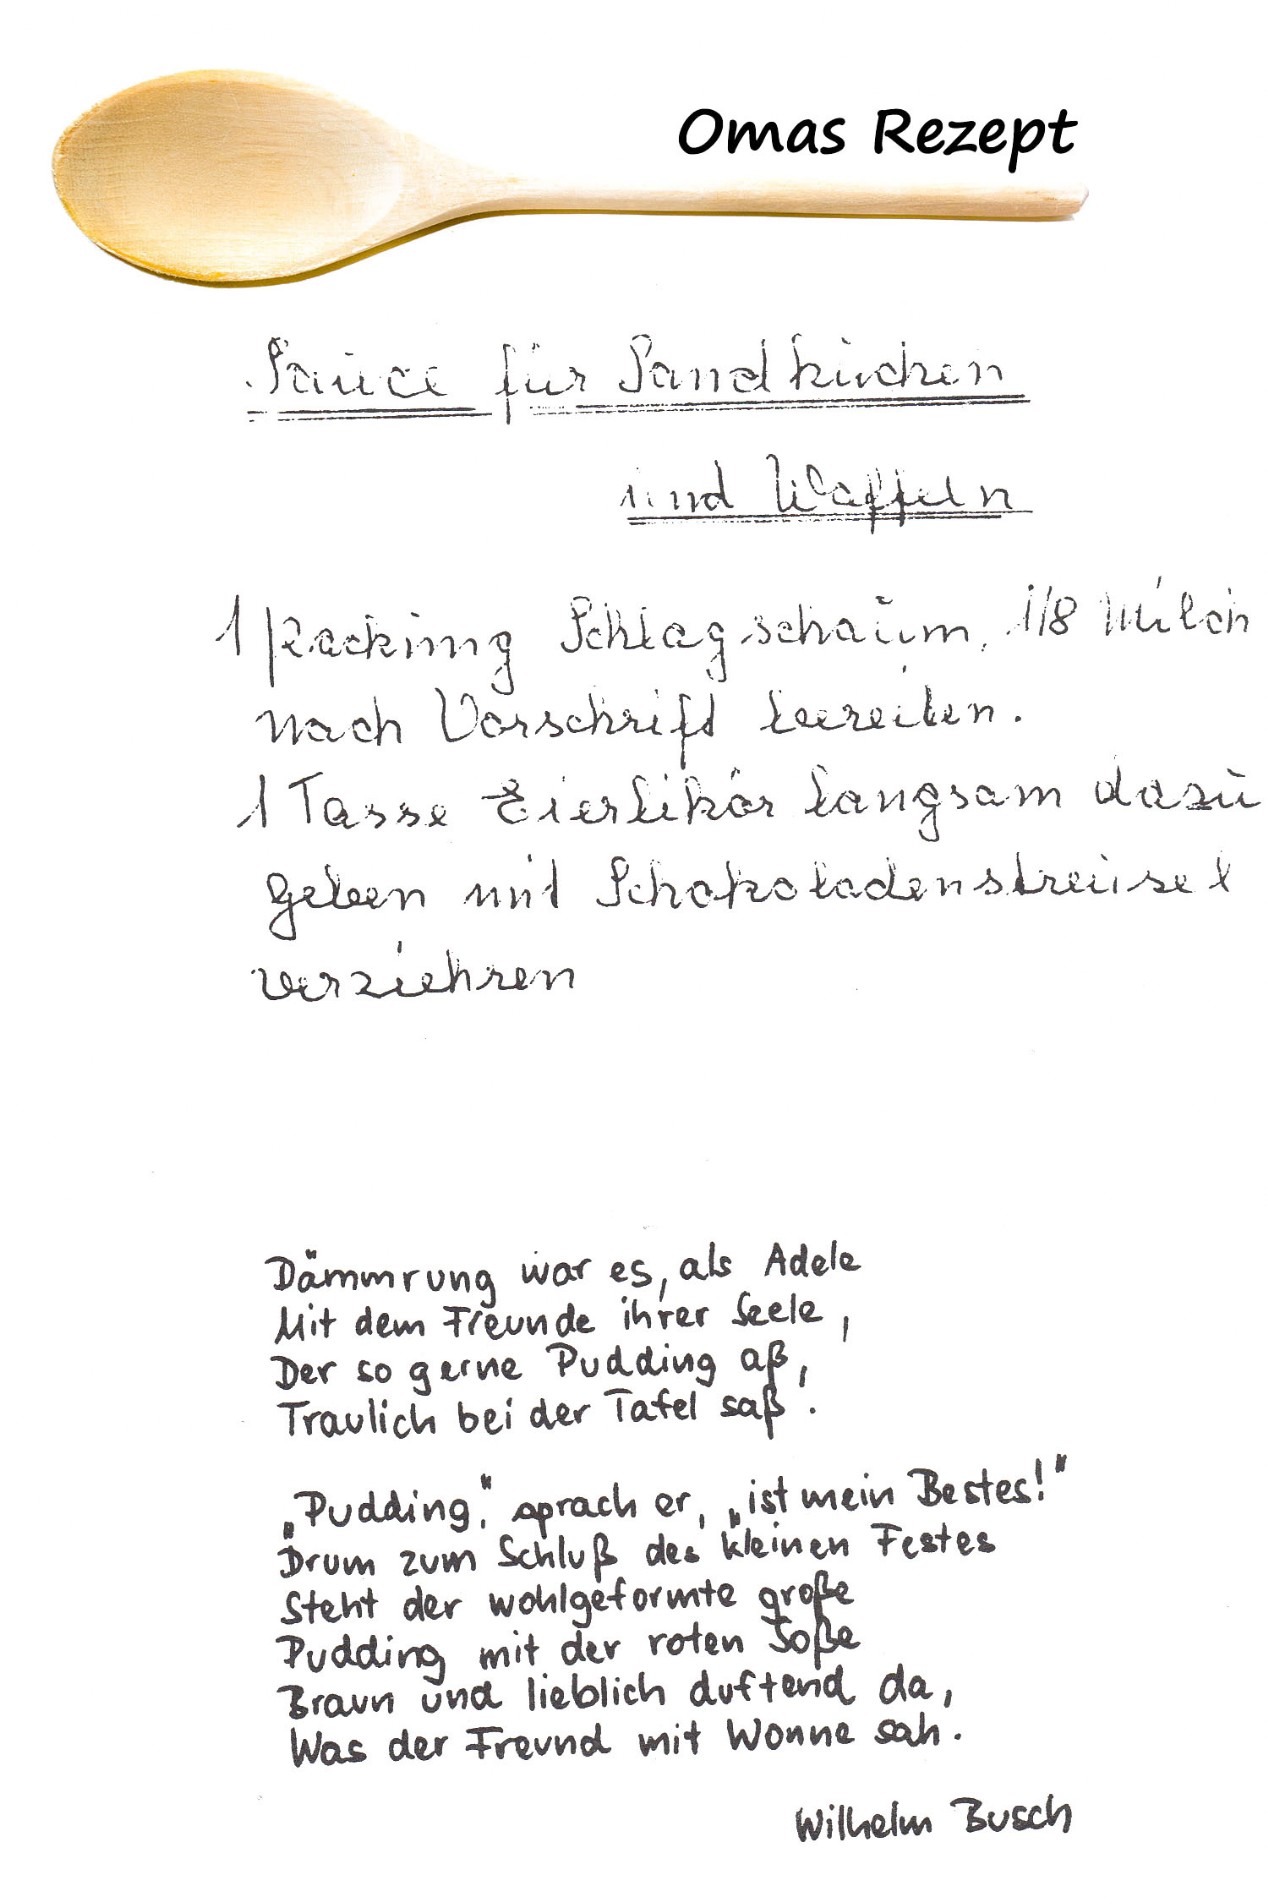 Omas Rezept
Sauce für Sandkuchen
und Waffeln
1 Packung Schlagschaum, 1/8 Milch
nach Vorschrift bereiten.
1 Tasse Eierlikör langsam dazu
geben mit Schokoladenstreusel
verziehren
Dämmrung war es, als Adele
Mit dem Freunde ihrer Seele,
Der so gerne Pudding aß,
Traulich bei der Tafel saß.
„Pudding," sprach er, „ist mein Bestes!"
Drum zum Schluß des kleinen Festes
Steht der wohlgeformte große
Pudding mit der roten Soße
Braun und lieblich duftend da,
Was der Freund mit Wonne sah.
Wilhelm Busch